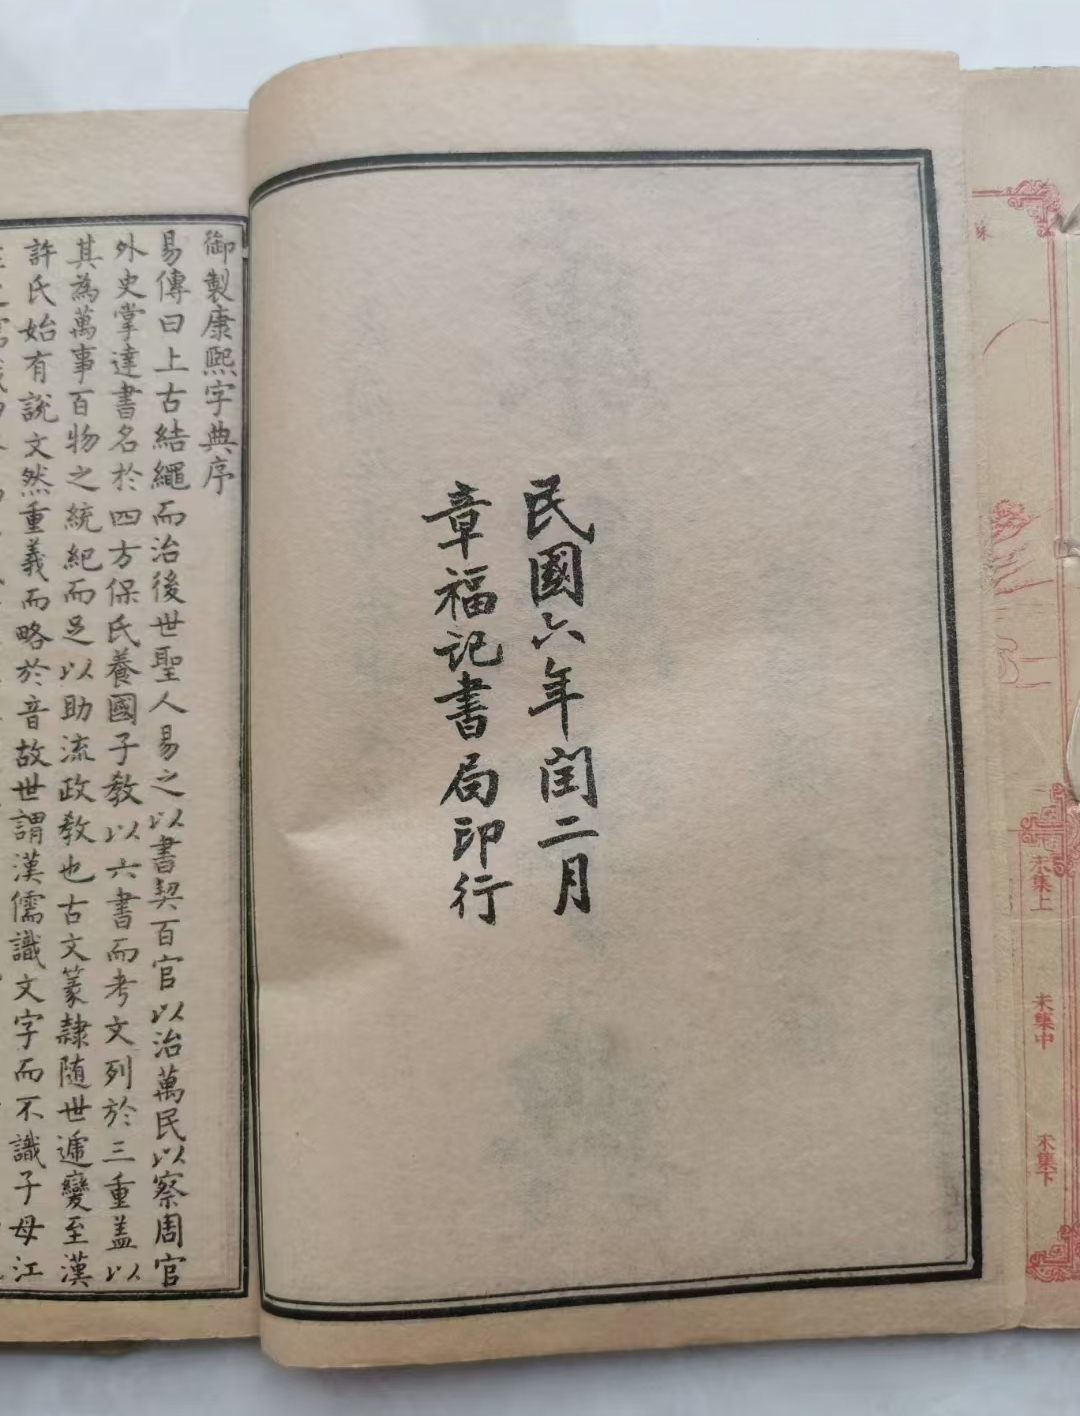 未集上
未集中
未集下
民國六年閏二月
章福記書局印行
御製康熙字典序
易傳曰上古結繩而治後世聖人易之以書契百官以治萬民以察周官
外史掌達書名於四方保氏養國子教以六書而考文列於三重盖以
其為萬事百物之統紀而足以助流政教也古文篆隸随世遞變至漢
許氏始有說文然重義而略於音故世謂漢儒識文字而不識子母江